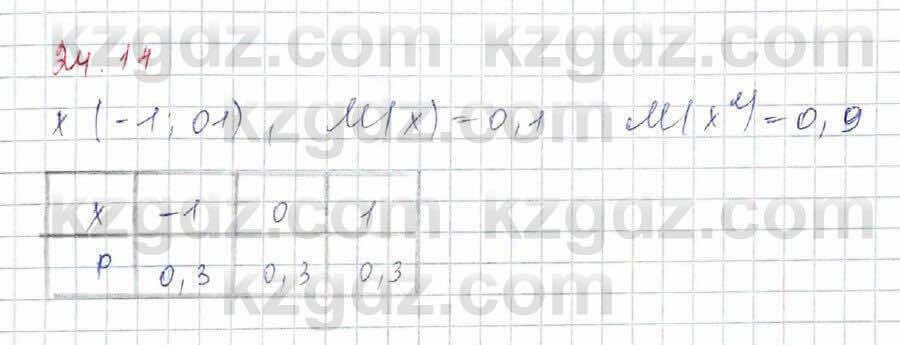 kzgdz.com kzgdz.com
34.14
x (-1; 01), M(x)=0,1 M(x²)=0,9
kzgdz.com
x -1 0 1
kzgdz.com kzgdz.com
P 0,3 0,3 0,3
kzgdz.com